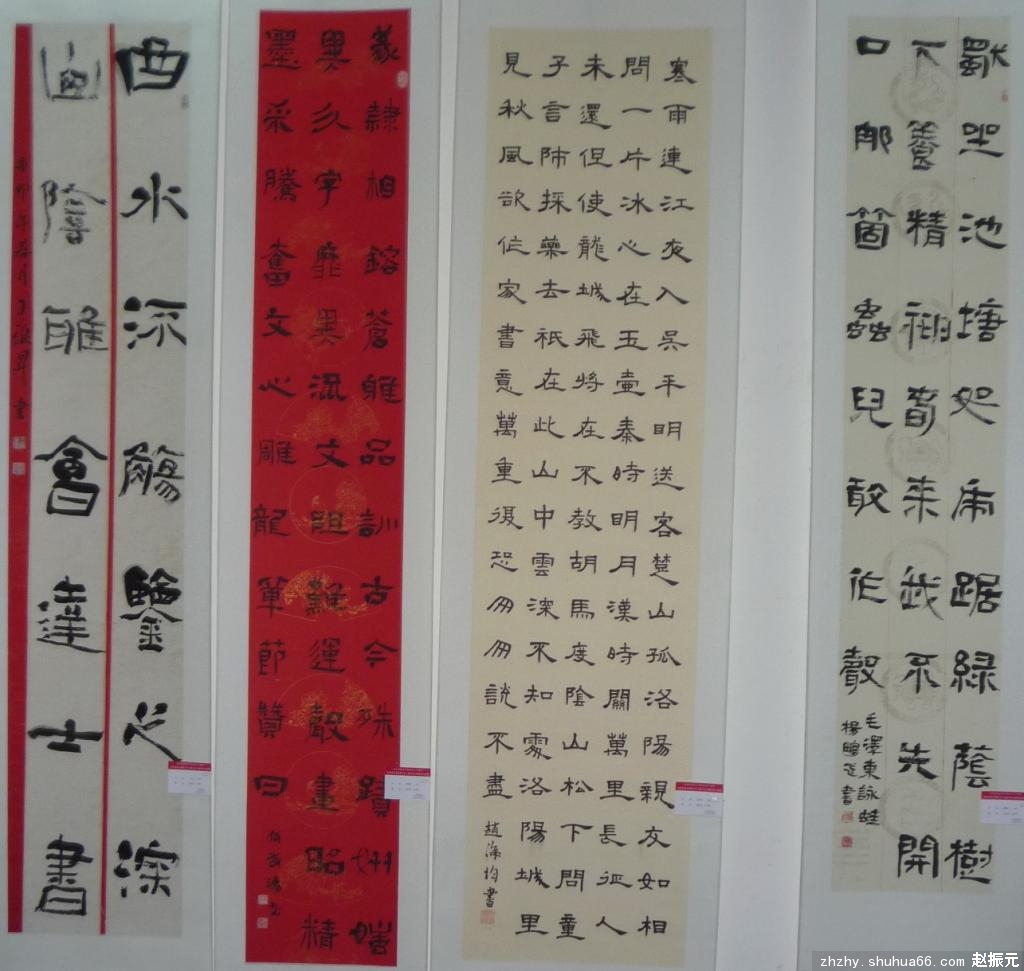 獨坐池塘如虎踞綠蔭樹
下養精神春來我不先開
口那箇蟲兒敢作聲
毛澤東詠蛙
寒雨連江夜入吳平明送客楚山孤洛陽親友如相
問一片冰心在玉壺秦時明月漢時關萬里長征人
未還但使龍城飛將在不教胡馬度陰山松下問童
子言師採藥去祇在此山中雲深不知處洛陽城里
見秋風欲作家書意萬重復恐匆匆說不盡
篆隸相鎔蒼雅品訓古今殊蹟妍媸
異分字靡異流文阻難運聲畫昭精
墨采騰奮文心雕龍章節贊曰
曲水流觴鑒之深
山陰雅會達士書
zhzhy.shuhua66.com 赵振元